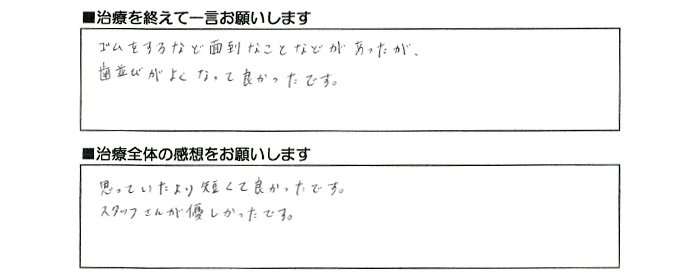 ■治療を終えて一言お願いします
ゴムをするなど面倒なことなどがあったが、
歯並びがよくなって良かったです。
■治療全体の感想をお願いします
思っていたより短くて良かったです。
スタッフさんが優しかったです。